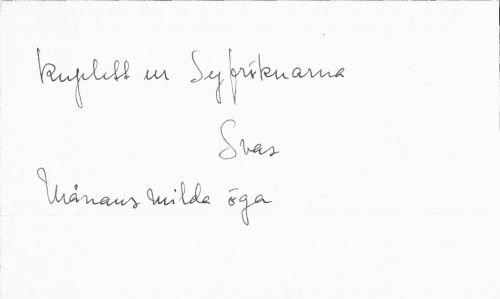 Kuplett ur Syfröknarna
Svas
Månans milda öga